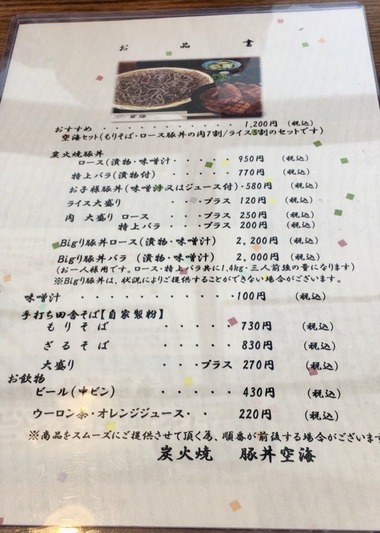 お品書
おすすめ ・・・・・・・・・・ 1,200円 (税込)
空海セット(もりそば・ロース豚丼の肉7割/ライス5割のセットです)
炭火焼豚丼
ロース(漬物・味噌汁 ・・・・ 950円 (税込)
特上バラ(漬物付) ・・・・ 770円 (税込)
お子様豚丼(味噌汁又はジュース付)・580円 (税込)
ライス大盛り ・・・・プラス 120円 (税込)
肉 大盛り ロース ・・・・プラス 250円 (税込)
特上バラ ・・・・プラス 200円 (税込)
Bigり豚丼ロース(漬物・味噌汁) 2,200円 (税込)
Bigり豚丼バラ (漬物・味噌汁) 2,000円 (税込)
(お一人様用です。ロース・特上バラ共に1.4kg・三人前強の量になります)
※Bigり豚丼は、状況によりご提供することができない場合がございます。
味噌汁 ・・・・・・・・・・ 100円 (税込)
手打ち田舎そば【自家製粉】
もりそば ・・・・・ 730円 (税込)
ざるそば ・・・・・ 830円 (税込)
大盛り ・・・プラス 270円 (税込)
お飲物
ビール(中ビン) ・・・・・ 430円 (税込)
ウーロン茶・オレンジジュース・・ 220円 (税込)
※商品をスムーズにご提供させて頂く為、順番が前後する場合がございます
炭火焼 豚丼空海